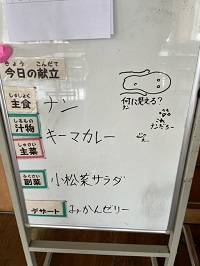 きょう こんだて
今日の献立
しゅしょく
主食
ナン
しるもの
汁物
キーマカレー
しゅさい
主菜
ふくさい
副菜
小松菜サラダ
デザート
みかんゼリー
何に見える?